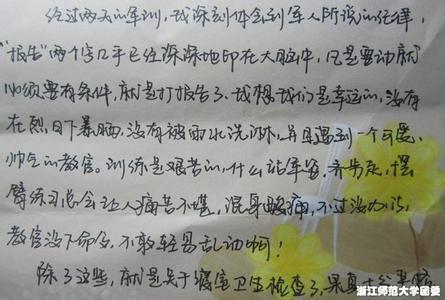 经过两天的军训,我深刻体会到军人所说的纪律,
"报告"两个字几乎已经深深地印在大脑中,凡是要动就
必须要有条件,就是打报告了.我想我们是幸运的,没有
在烈日下暴晒,没有被雨水洗淋,并且遇到一个可爱,
帅气的教官。训练是艰苦的,什么站军姿,齐步走,摆
臂练习总会让人痛苦不堪,混身酸痛,不过没办法,
教官没下命令,不敢轻易乱动啊!
除了这些,就是关于寝室卫生检查了,果真十分严格
浙江师范大学团委